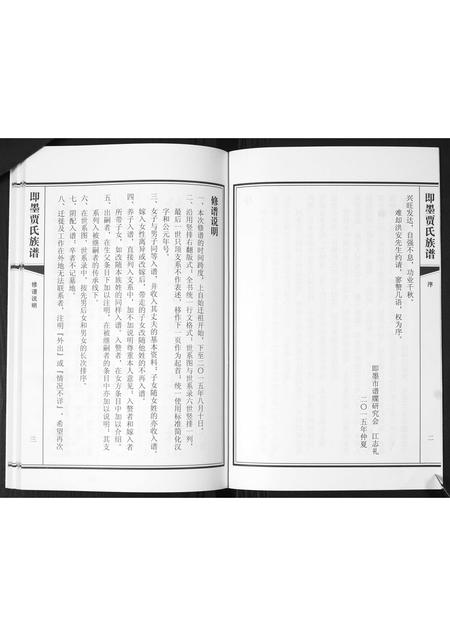 即墨贾氏族谱
序
二
兴旺发达，自强不息，功业千秋。
难却洪安先生约请，謇赘几语，权为序。
即墨市谱牒研究会　江志礼
二〇一五年仲夏
修谱说明
一、本次修谱的时间跨度，上自始迁祖开始，下至二〇一五年八月十日。
二、沿用竖排右翻版式，全书统一行文格式：世系图与世系录六世竖排一列，
最后一世只顶支系不作表述，移作下一页作为起首。统一使用标准简化汉
字和公元年号。
三、女子与男子同等入谱，并收入其丈夫的基本资料；子女随女姓的亦收入谱。
嫁入女性离异或改嫁后，带走的子女改随他姓的不再入谱。
四、养子入谱，直接列入支系中，加不加说明尊重本人意见。入赘者和嫁入者
所带子女，如改随本族姓的同样入谱。入赘者，在女方条目中加以介绍。
五、出嗣者，在生父条目下加以注明，在被继嗣者的条目中亦加以说明；其支
系列入被继嗣者的传承线下。
六、在世系图、世系录中，按先男后女和男女的长次排序。
七、阴配入谱。卒者不记墓地。
八、迁徙及工作在外地无法联系者，注明“外出”或“情况不详”，希望再次
即墨贾氏族谱
修谱说明
三